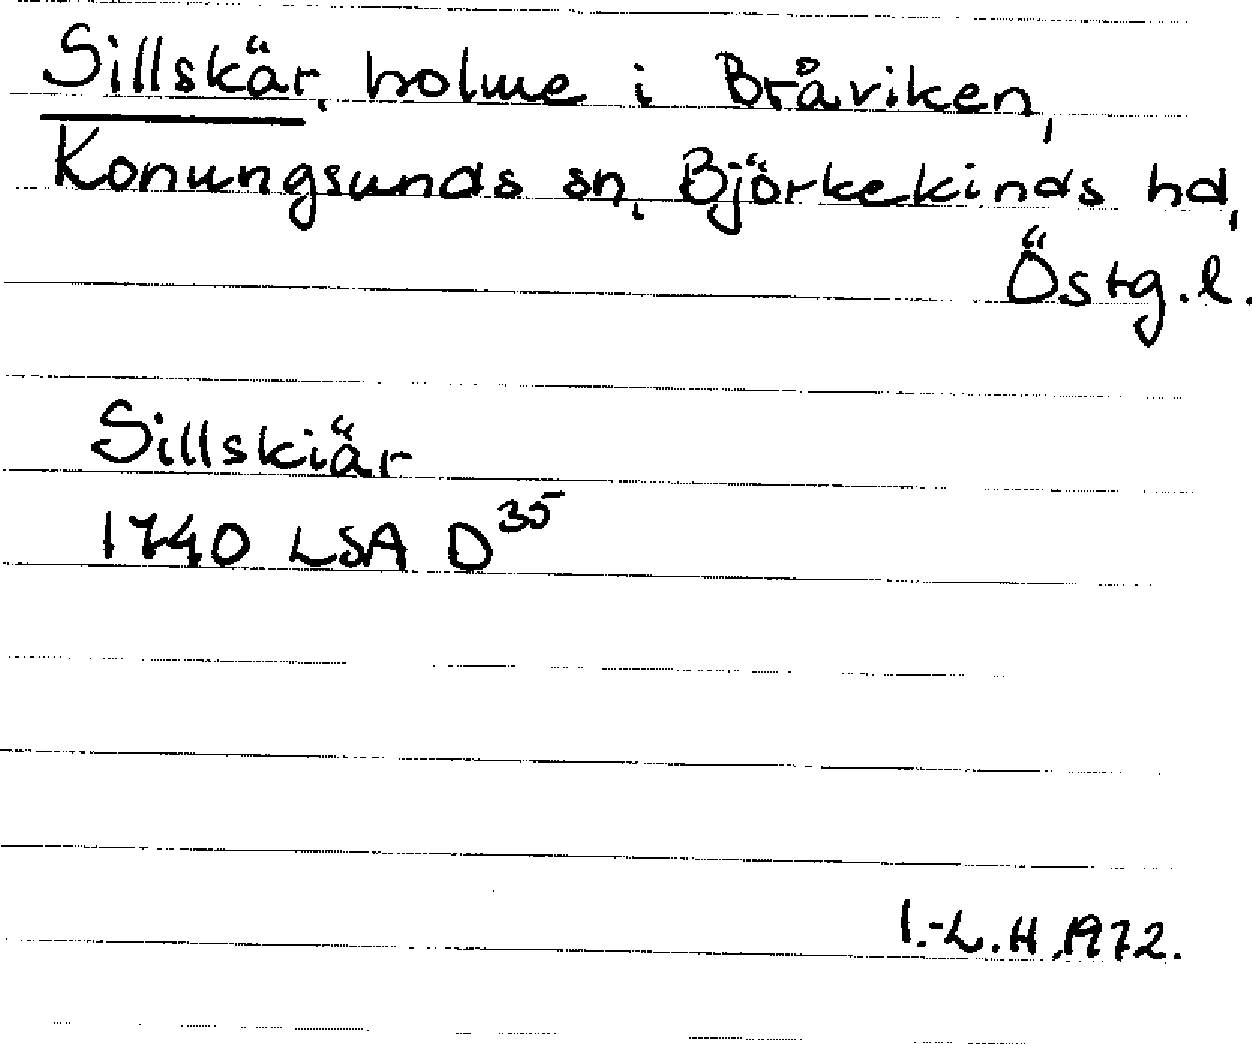 Sillskär, holme i Bråviken,
Konungsunds sn, Björkekinds hd,
Östg.l.
Sillskiär
1740 LSA D35
I.-L.H, 1972.